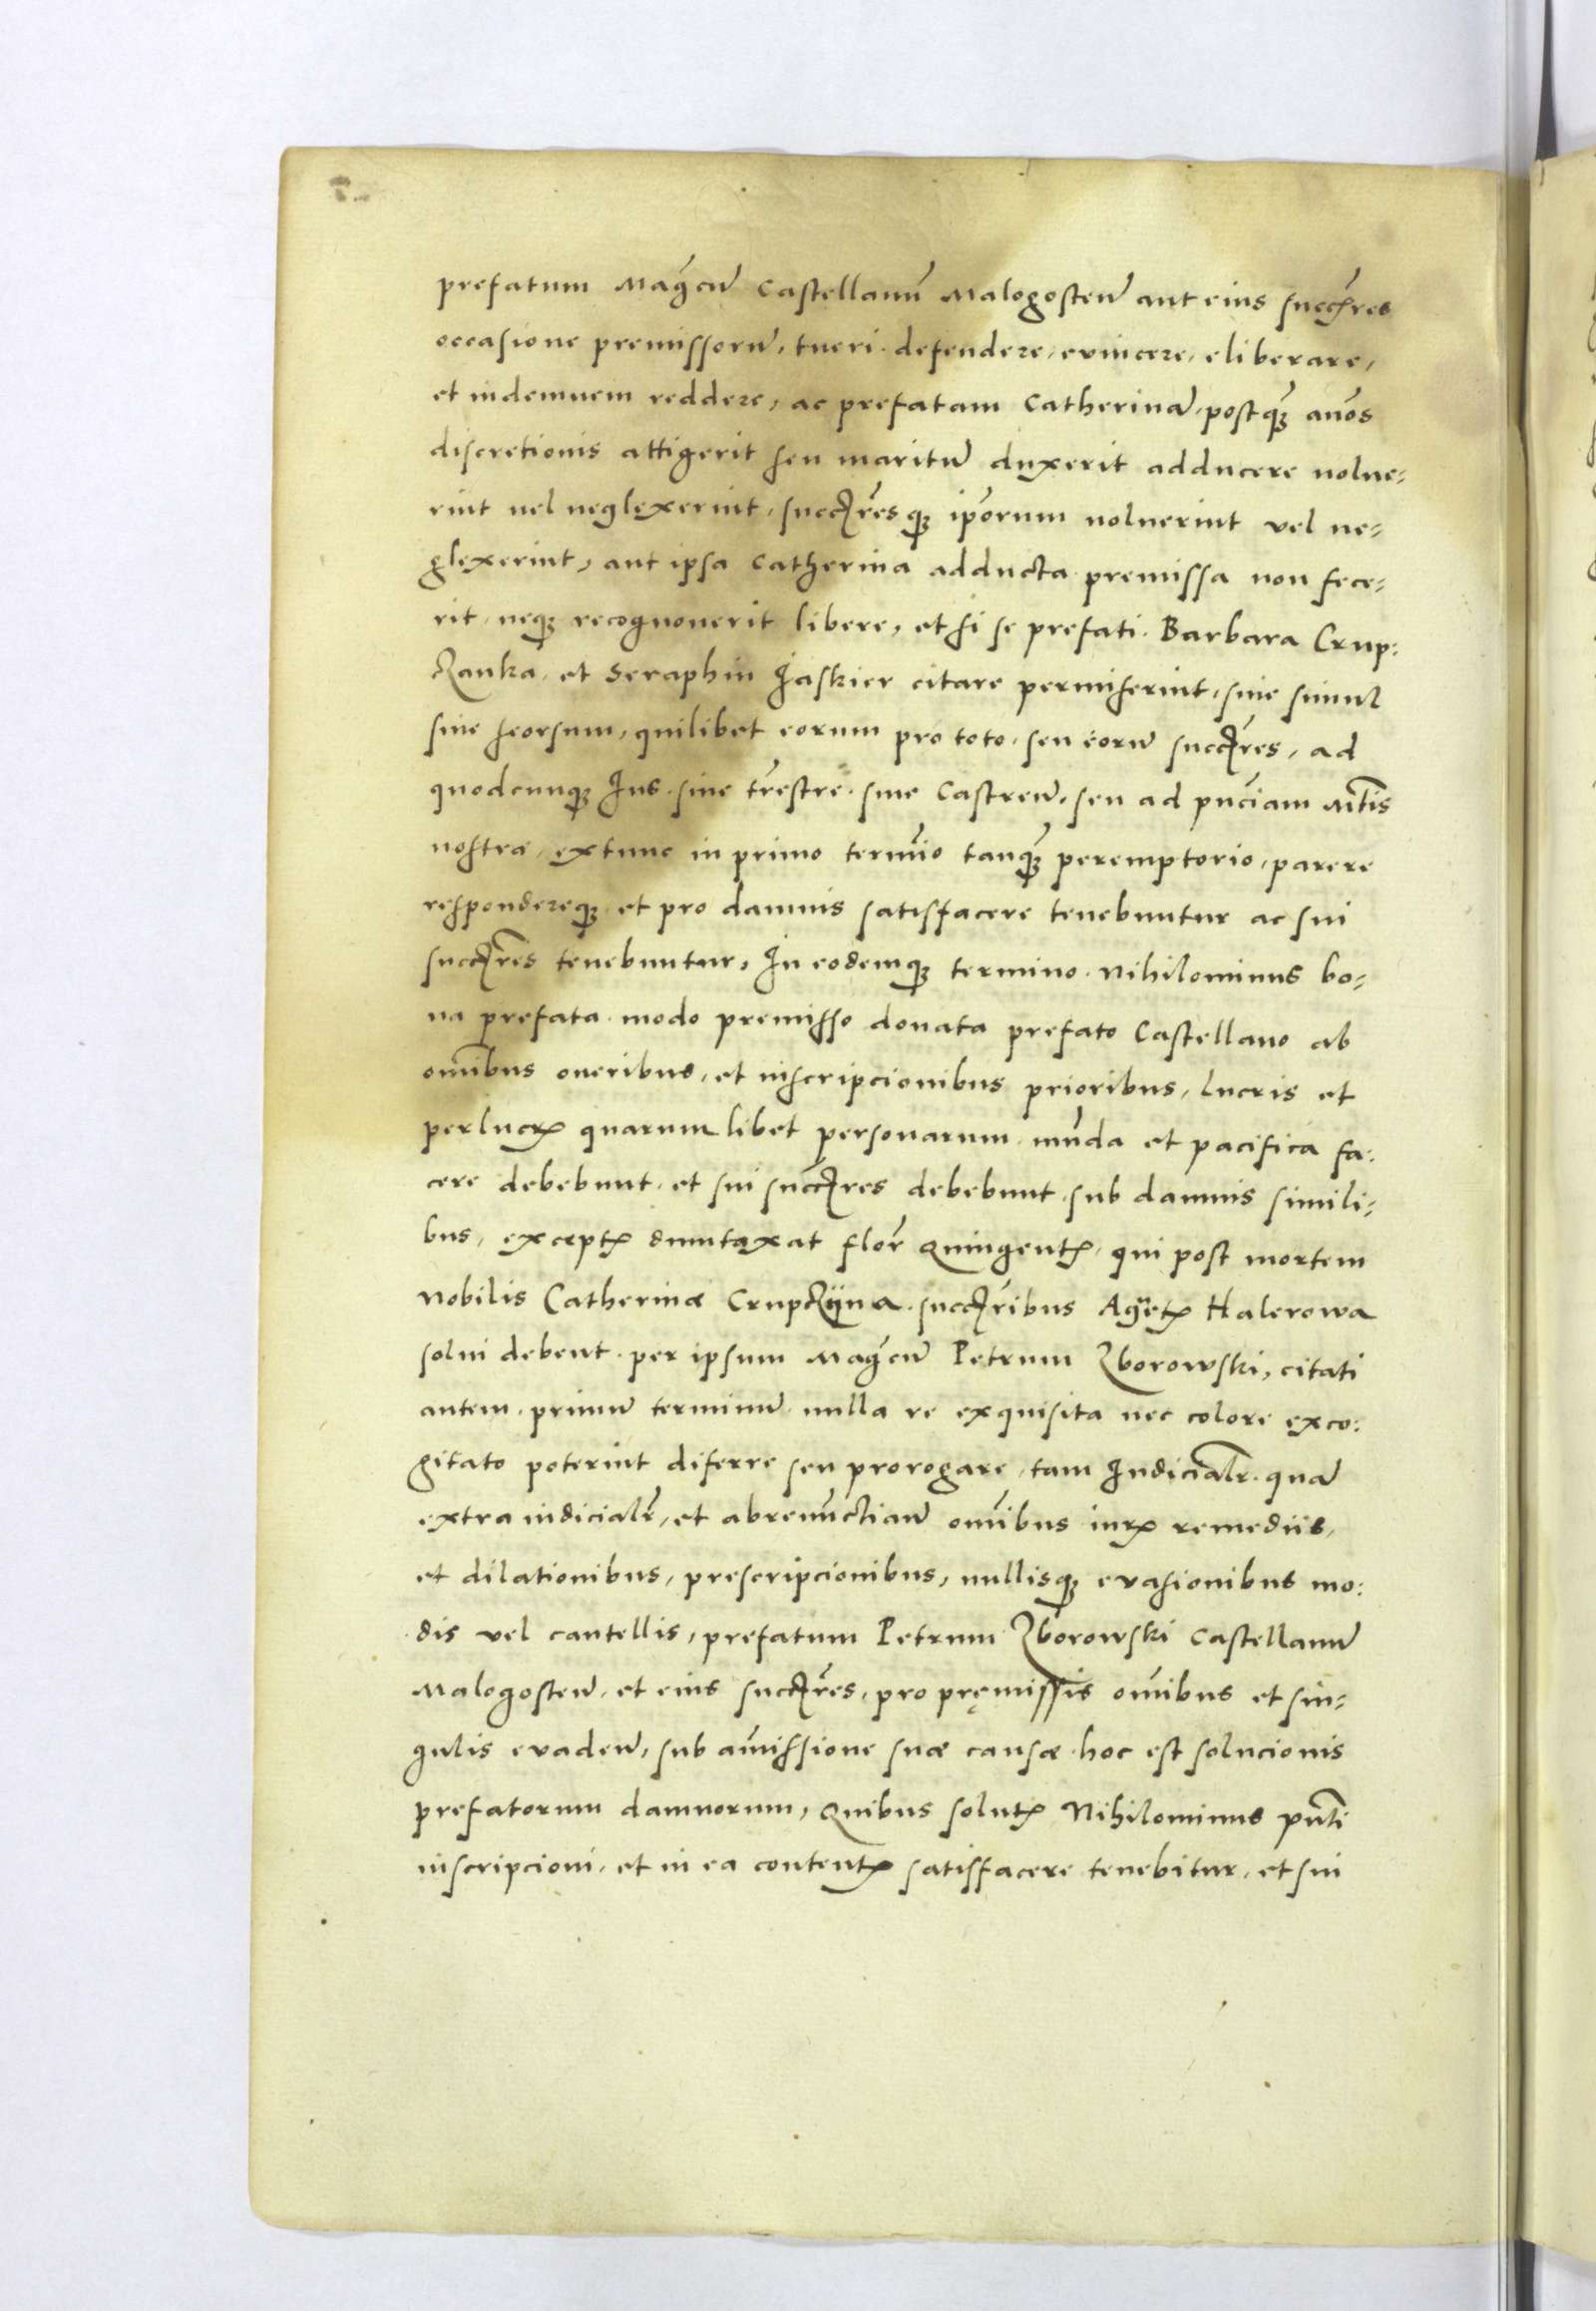 prefatum Mag̃cũ Castellanũ Malogosteñ aut eius succẽres
occasione premissorũ, tueri. defendere, evincere, eliberare,
et indemnem reddere, ac prefatam Catherinã, postq̃ȝ años
discretionis attigerit seu maritũ duxerit adducere nolue-
rint vel neglexerint, succr̃esqȝ ip̃orum noluerint vel ne-
glexerint, aut ipsa Catherina adducta premissa non fece-
rit, neqȝ recognouerit libere, et si se prefati. Barbara Crup-
czanka, et Seraphin Jaskier citare permiserint, siue simul
siue seorsum, quilibet eorum pro toto. seu eorũ succr̃es, ad
quodcunqȝ Ius. siue tr̃estre. siue Castreñ, seu ad pñciam Mt̃is
nostræ, extunc in primo termĩo tanq̃ȝ peremptorio, parere
respondereqȝ et pro damnis satisfacere tenebuntur ac sui
succr̃es tenebuntur, In eodemqȝ termino. Nihilominus bo-
na prefata. modo premisso donata prefato Castellano ab
om̃ibus oneribus, et inscripcionibus prioribus, lucris et
perlucrꝭ quarumlibet personarum. mũda et pacifica fa-
cere debebunt. et sui succr̃es debebunt. sub damnis simili-
bus, exceptꝭ dumtaxat flor̃ Quingentꝭ, qui post mortem
Nobilis Catherinæ Crupczÿna. succr̃ibus Agñetꝭ Halerowa
solui debent. per ipsum Mag̃cũ Petrum Zborowski, citati
autem. primũ terminũ. nulla re exquisita nec colore exco-
gitato poterint diferre seu prorogare, tam Iudicialr̃. quã
extra iudicialr̃, et abrenũctiañ om̃ibus iurꝭ remediis,
et dilationibus, prescripcionibus, nullisqȝ evasionibus mo-
dis vel cautellis, prefatum Petrum Zborowski Castellanũ
Malogosteñ. et eius succr̃es, pro pręmissis om̃ibus et sin-
gulis evadeñ, sub am̃issione suæ causæ. hoc est solucionis
prefatorum damnorum, Quibus solutꝭ Nihilominus pñti
inscripcioni, et in ea contentꝭ satisfacere tenebitur, et sui